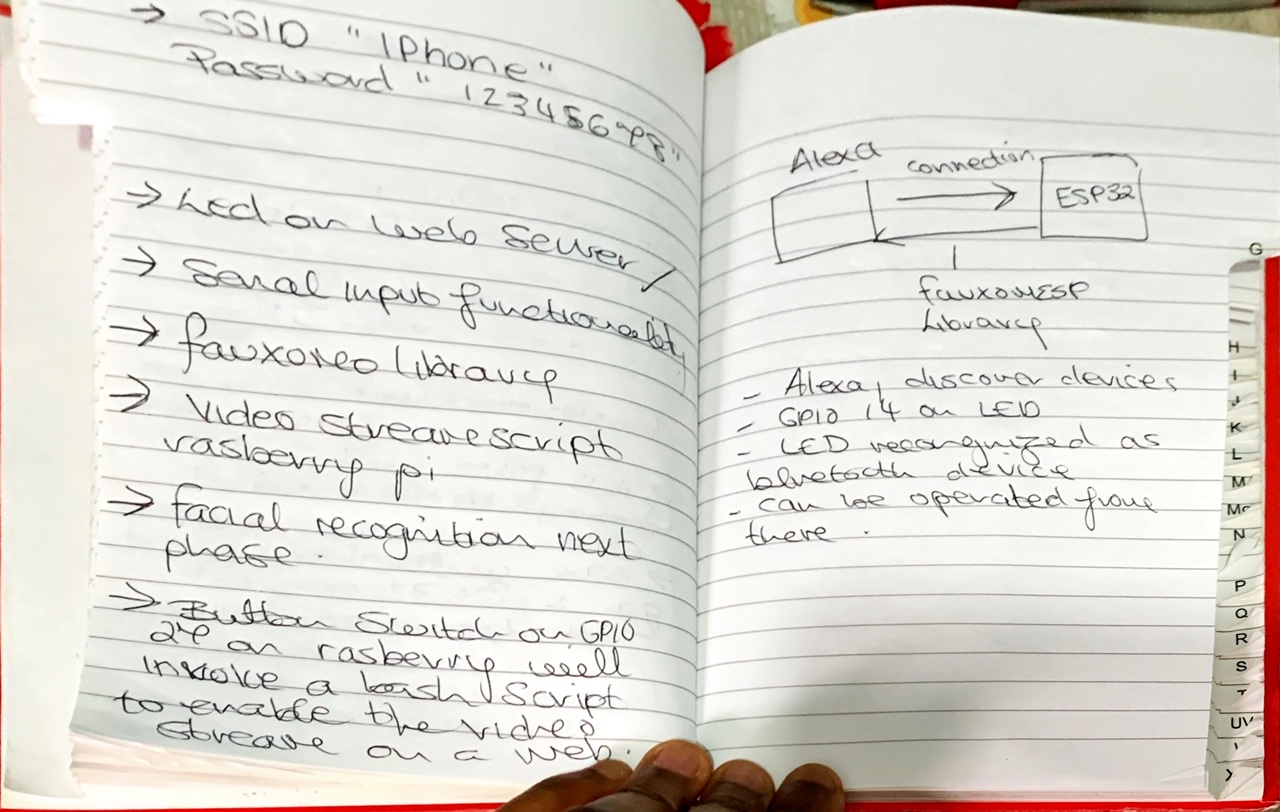 → SSID "IPhone"
Password "12345678"
→ Led on Web Server /
→ Serial input functionality
→ fauxoneo library
→ Video stream script
rasberry pi
→ facial recognition next
phase.
→ Button Switch on GPIO
27 on rasberry will
invoke a bash script
to enable the video
stream on a web.
Alexa
connection
ESP32
fauxomESP
Library
- Alexa, discover devices
- GPIO 14 on LED
- LED recongnized as
bluetooth device
- can be operated from
there.
G
H
I
J
K
L
M
Mc
N
P
Q
R
S
T
UV
Y